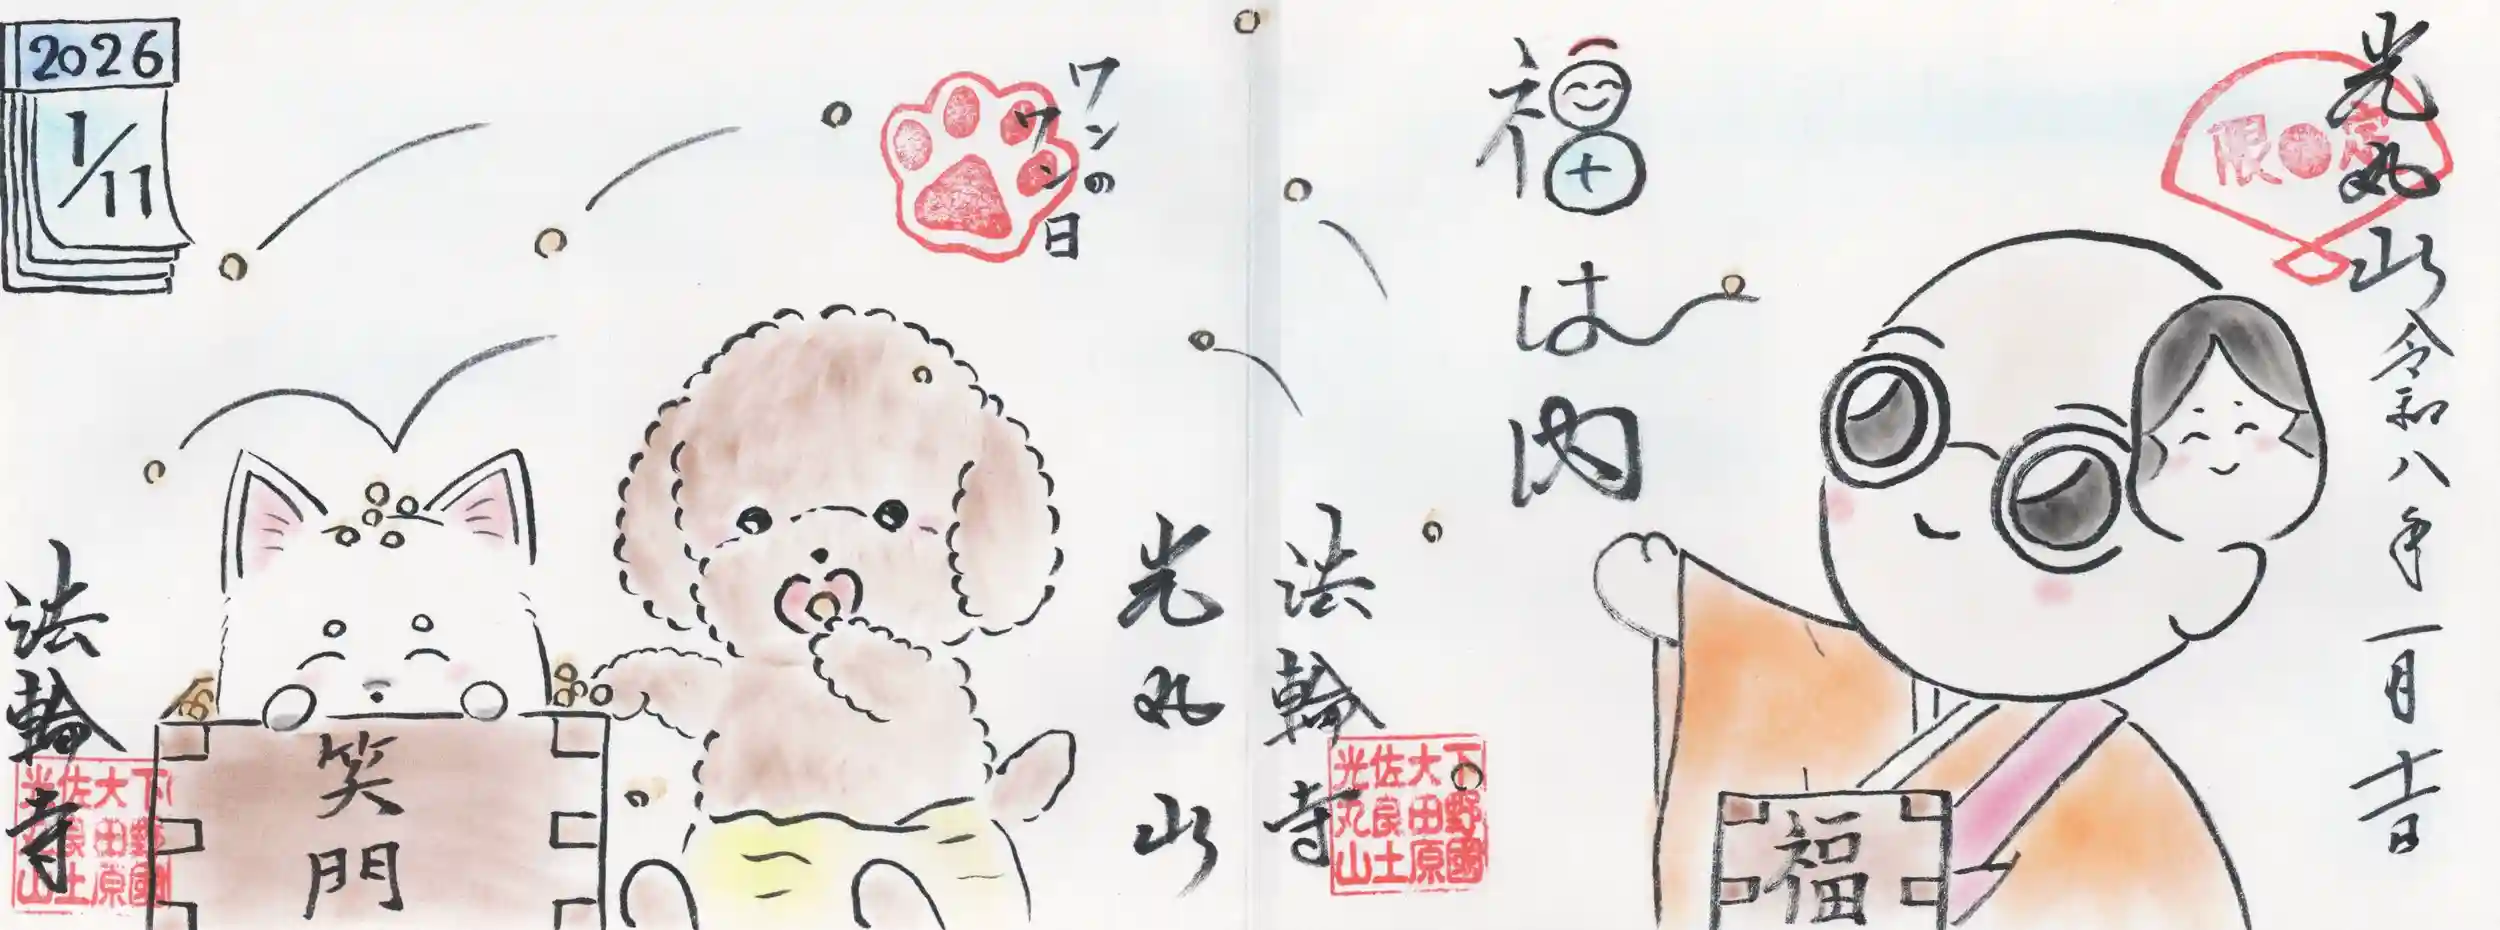 光丸山
令和八年一月十一日
限定
福は内
福
法輪寺
下野國
大田原
佐良土
光丸山
光丸山
ワンワンの日
笑門
2026
1/11
法輪寺
下野國
大田原
佐良土
光丸山